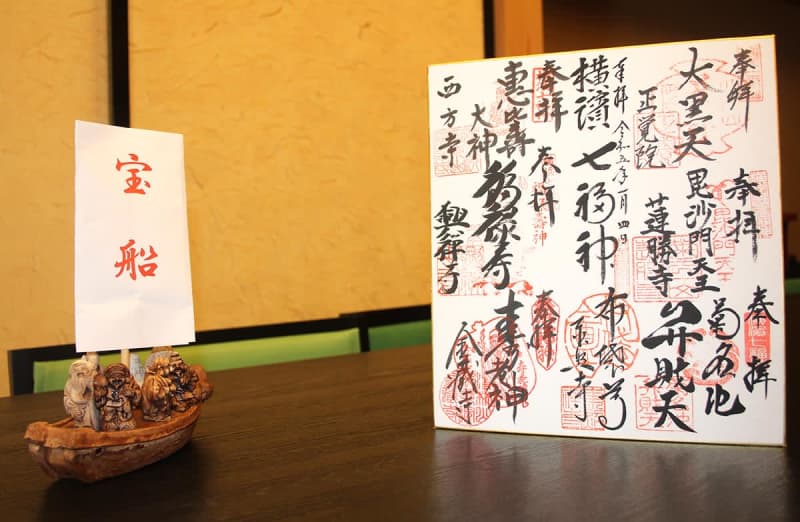 宝船
奉拝
大黒天
正覚院
奉拝
毘沙門天王
蓮勝寺
奉拝
菊名池
弁財天
奉拝 令和五年一月四日
横濱七福神
布袋尊
奉拝
大神
西方寺
奉拝
福禄寿
興禅寺
奉拝
寿老神
金蔵寺